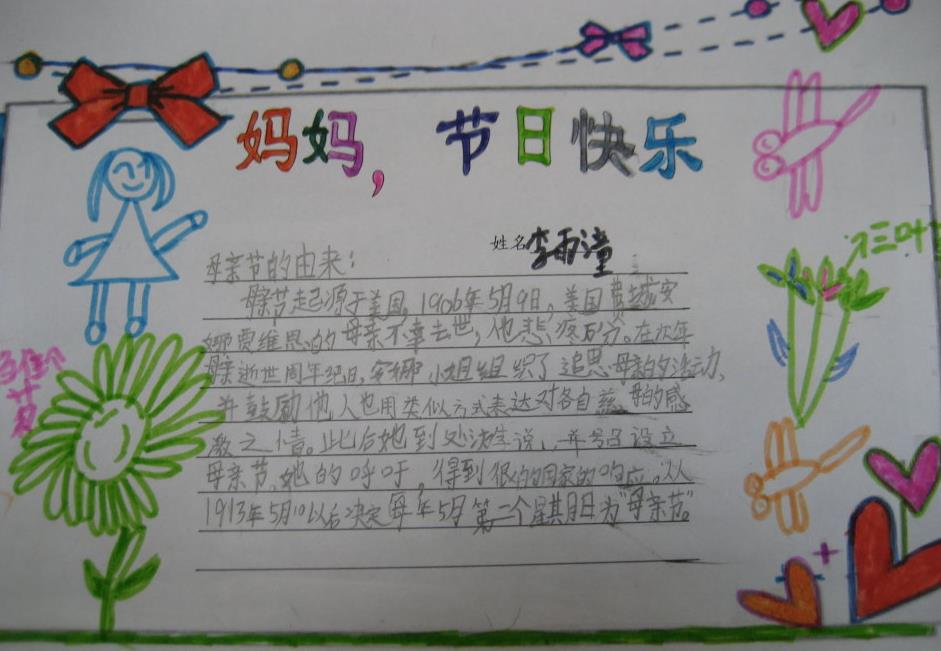 妈妈，节日快乐
姓名李雨潼
母亲节的由来：
母亲节起源于美国，1906年5月9日，美国费城安
娜贾维思的母亲不幸去世，他悲疼万分。在次年
母亲逝世周年纪日，安娜小姐组织了追思母亲的活动，
并鼓励他人也用类似方式表达对各自慈母的感
激之情。此后她到处游说，并号召设立
母亲节，她的呼吁，得到很的国家的响应。从
1913年5月10以后决定每年5月第二个星期日为“母亲节”。
三叶